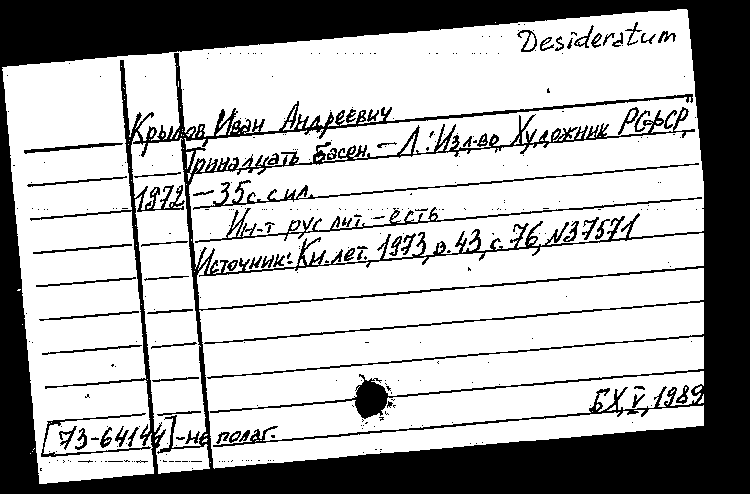 Desideratum
Крылов, Иван Андреевич
Тринадцать басен. — Л.: Изд-во „Художник РСФСР",
1972 — 35 с. с ил.
Ин-т рус лит. — есть
Источник: Кн. лет., 1973, в. 43, с. 76, N37571
БХ, V, 1989
[73-64144] - не полаг.